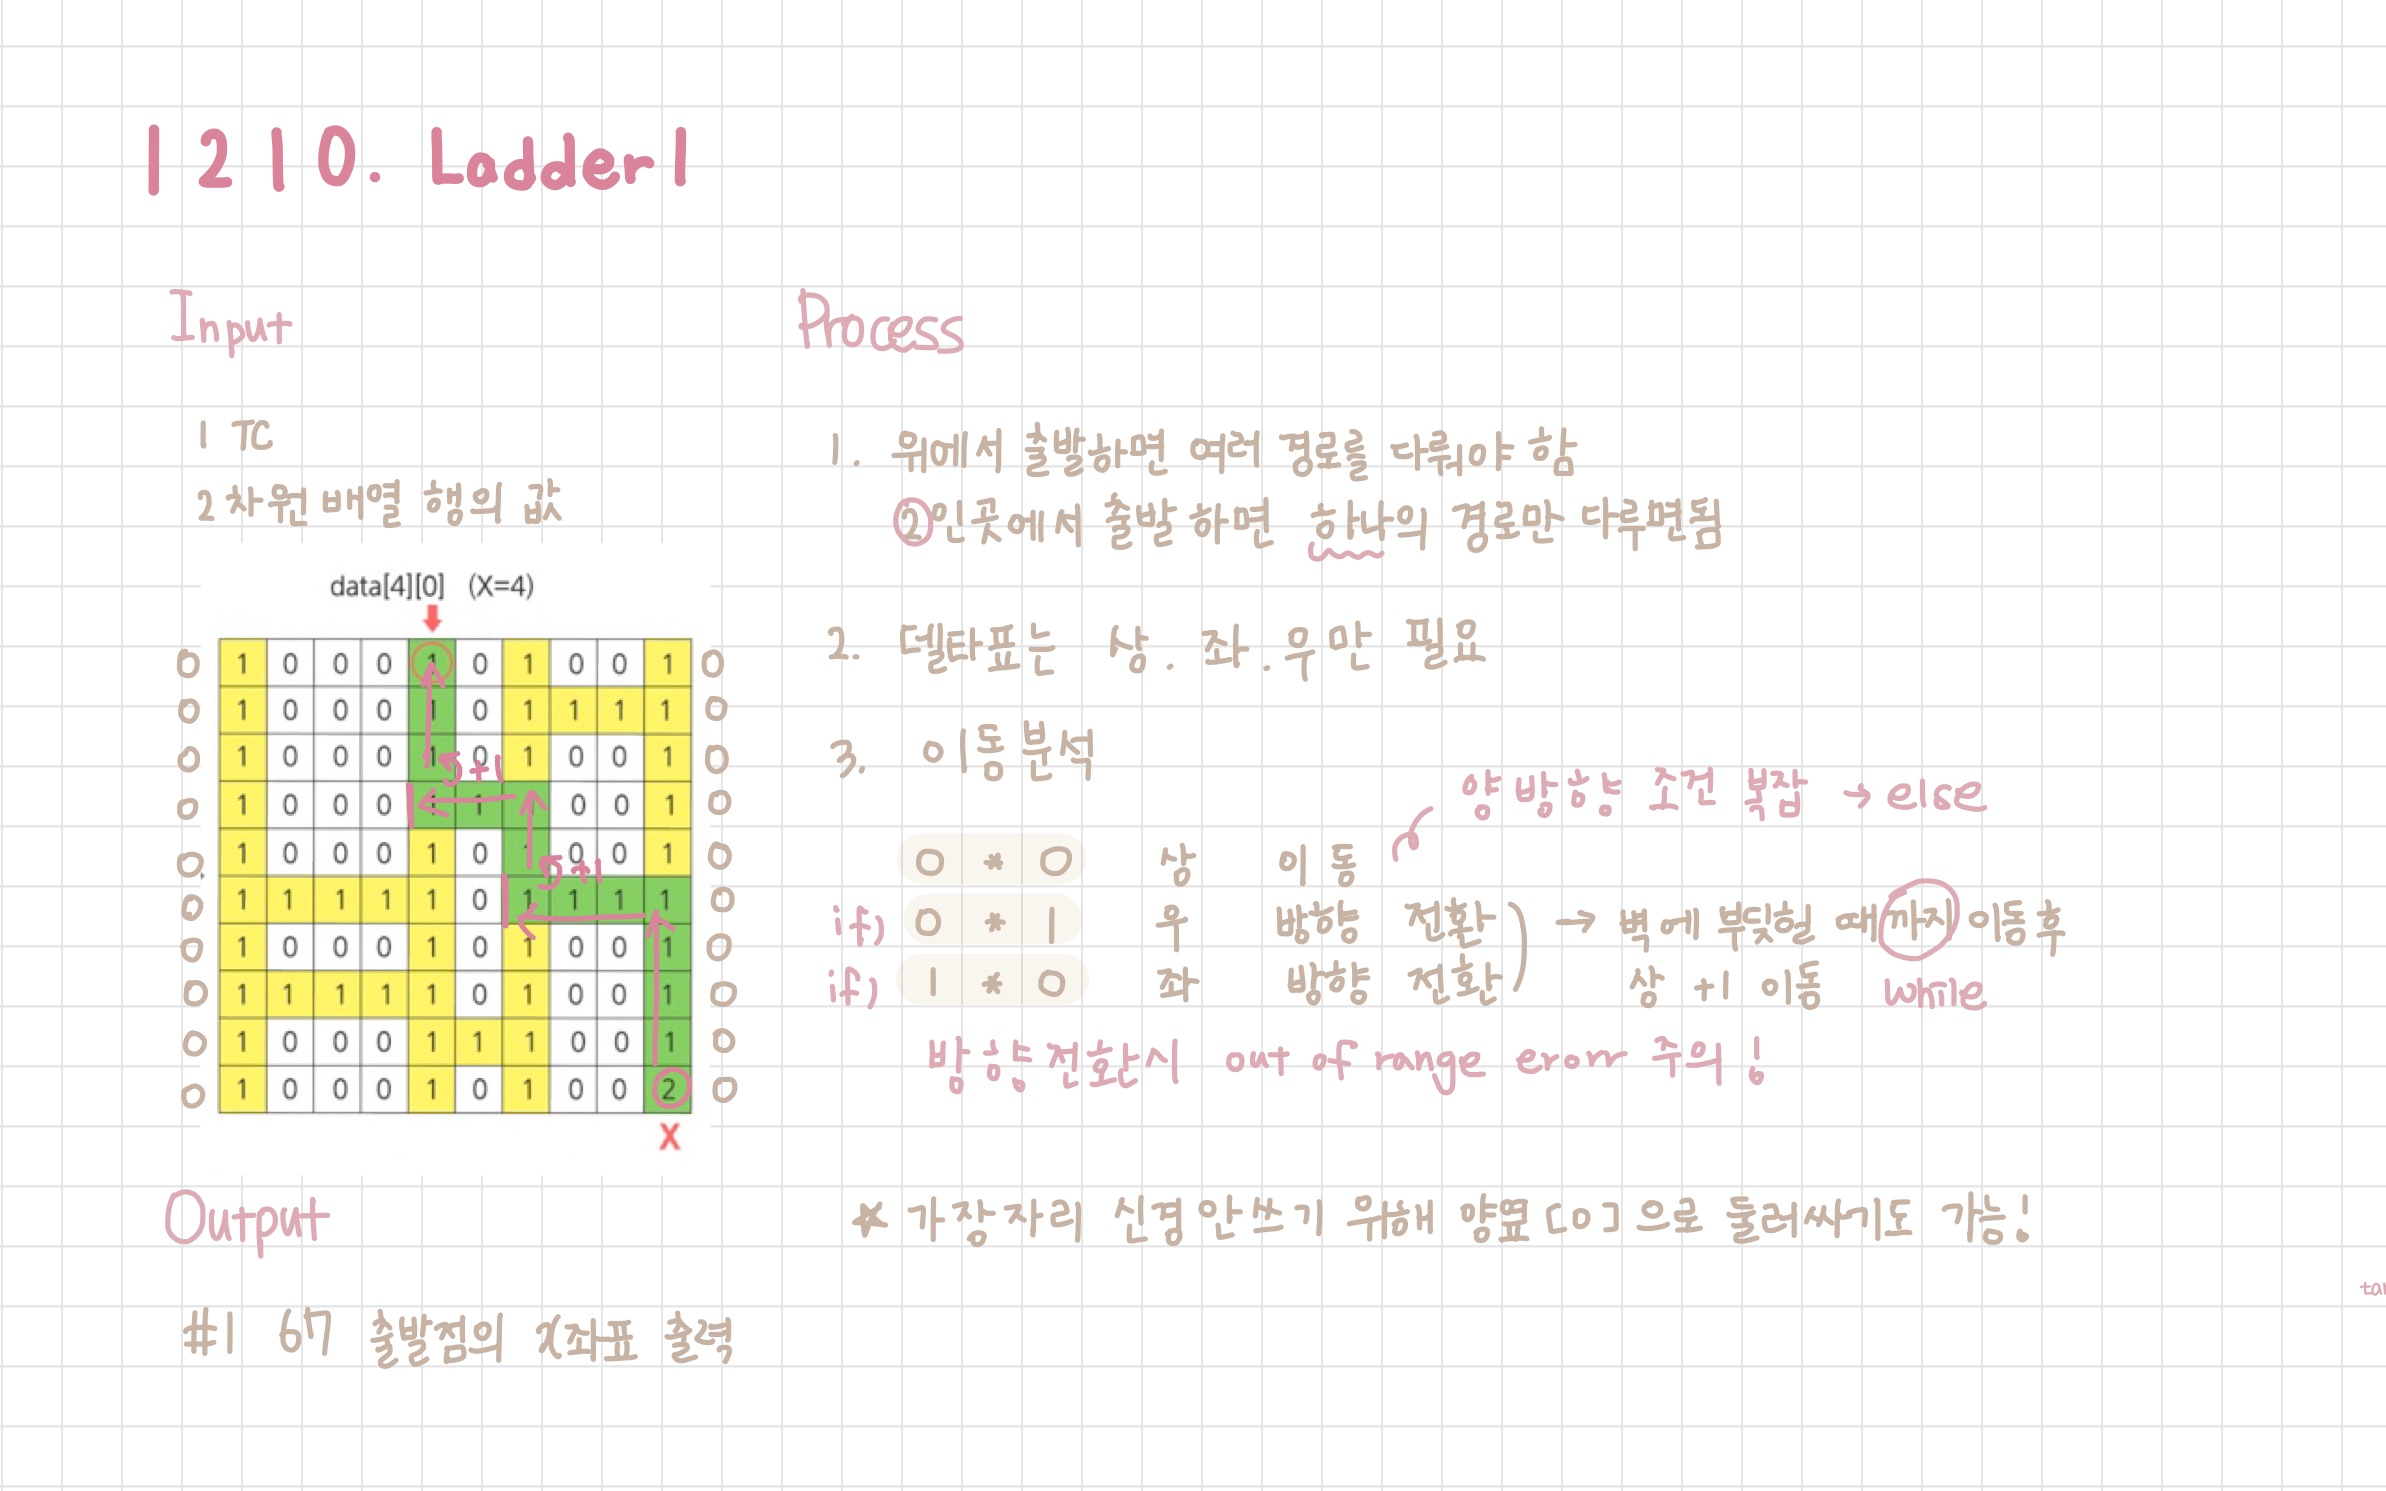 1210. Ladder1
Input
1 TC
2차원 배열 행의 값
data[4][0] (X=4)
0 1 0 0 0 1 0 1 0 0 1 0
0 1 0 0 0 1 0 1 1 1 1 0
0 1 0 0 0 1 0 1 0 0 1 0
+1
0 1 0 0 0 1 1 0 0 1 0
0 1 0 0 0 1 0 1 0 0 1 0
+1
0 1 1 1 1 1 0 1 1 1 1 0
0 1 0 0 0 1 0 1 0 0 1 0
0 1 1 1 1 1 0 1 0 0 1 0
0 1 0 0 0 1 1 1 0 0 1 0
0 1 0 0 0 1 0 1 0 0 2 0
X
Output
#1 67 출발점의 x좌표 출력
Process
1. 위에서 출발하면 여러 경로를 다뤄야 함
2인곳에서 출발하면 하나의 경로만 다루면됨
2. 델타표는 상. 좌. 우만 필요
3. 이동분석
양방향 조건 복잡 → else
0 * 0 상 이동
if) 0 * 1 우 방향 전환
if) 1 * 0 좌 방향 전환
→ 벽에 부딪힐 때까지 이동후
상 +1 이동 while
방향전환시 out of range erorr 주의!
* 가장자리 신경안쓰기 위해 양옆 [0]으로 둘러싸기도 가능!